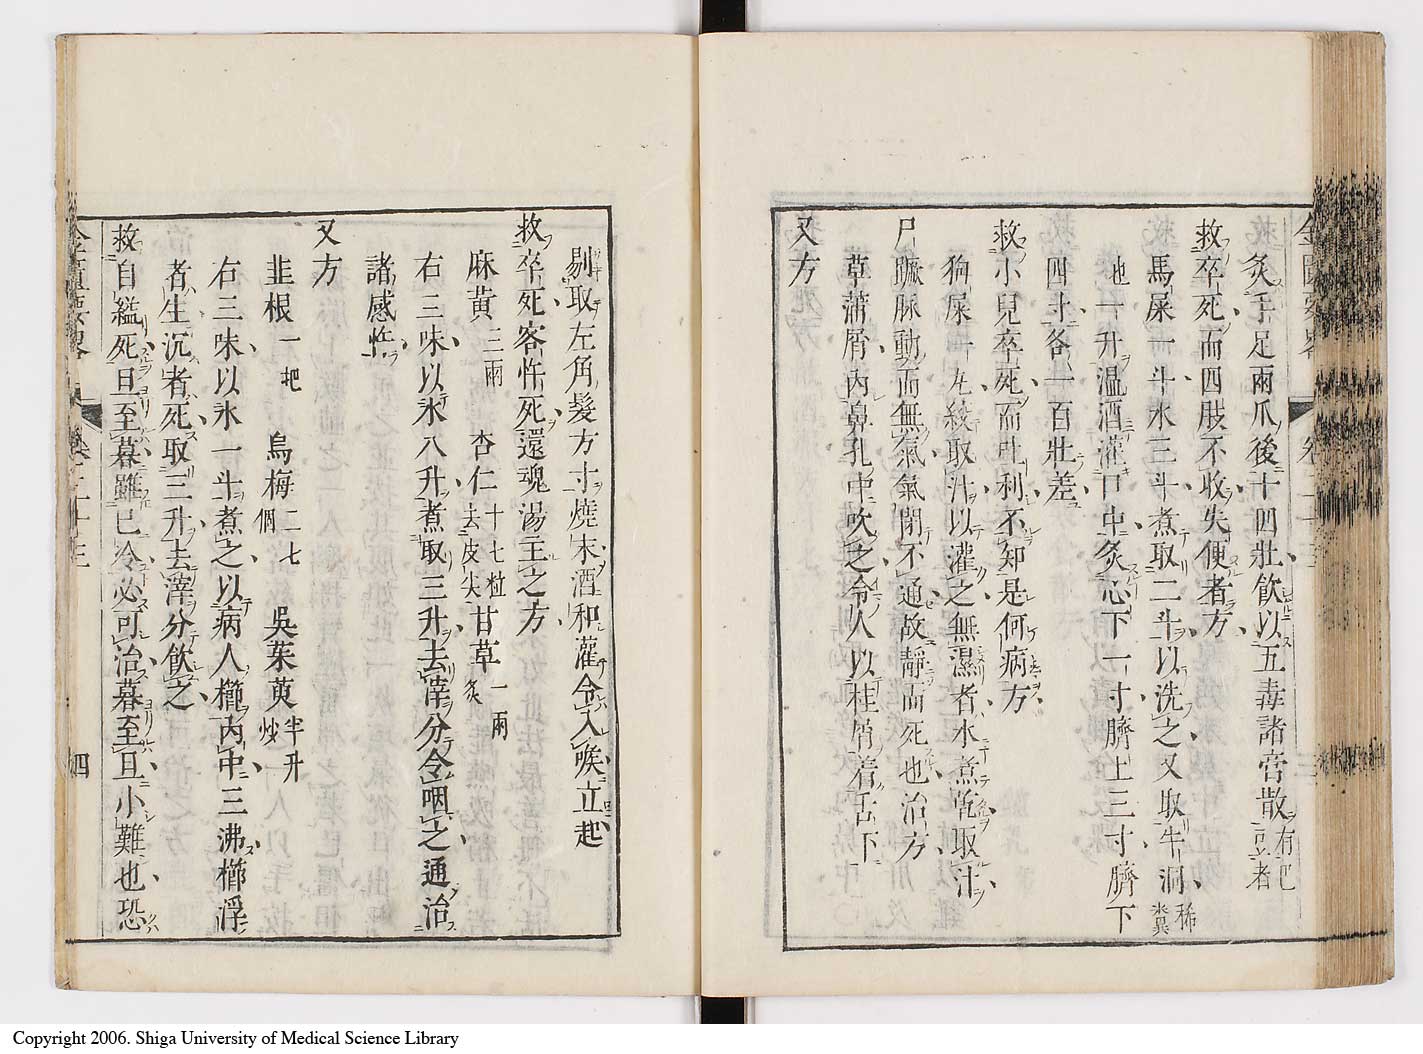 灸手足兩爪後十四壯飲以五毒諸膏散有巴豆者
救卒死而四肢不收失便者方
馬屎一斗水三斗煮取二斗以洗之又取牛洞稀糞
也一升溫酒灌口中灸心下一寸臍上三寸臍下
四寸各一百壯差
救小兒卒死而吐利不知是何病方
狗屎一丸絞取汁以灌之無濕者水煮乾取汁
尸蹶脉動而無氣氣閉不通故靜而死也治方
菖蒲屑內鼻孔中吹之令人以桂屑着舌下
又方
剔取左角髮方寸燒末酒和灌令入喉立起
救卒死客忤死還魂湯主之方
麻黃三兩 杏仁去皮尖十七粒 甘草一兩炙
右三味以水八升煮取三升去滓分令咽之通治
諸感忤
又方
韭根一把 烏梅二七個 吳茱萸半升炒
右三味以水一斗煮之以病人櫛內中三沸櫛浮
者生沉者死取三升去滓分飲之
救自縊死旦至暮雖已冷必可治暮至旦小難也恐
四
Copyright 2006. Shiga University of Medical Science Library